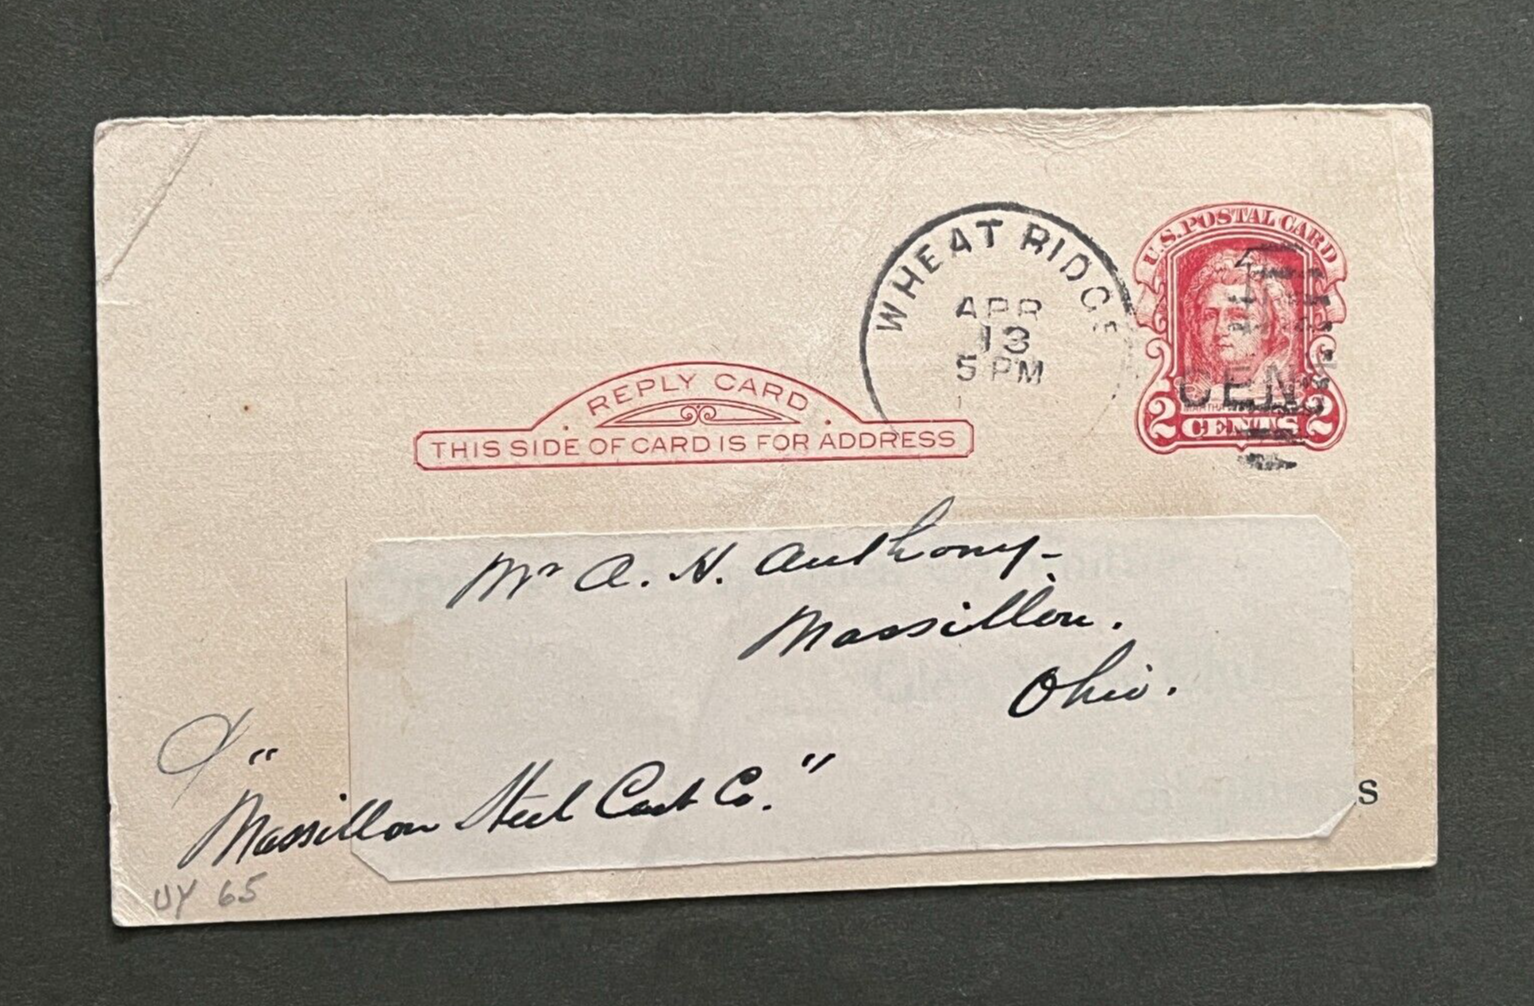 U.S. POSTAL CARD
WHEAT RIDGE
APR
13
5 PM
1
CENT
2 CENTS 2
REPLY CARD
THIS SIDE OF CARD IS FOR ADDRESS
Mr A. H. Anthony-
Massillon.
Ohio.
%"
Massillon Steel Cast Co."
s
UY 65